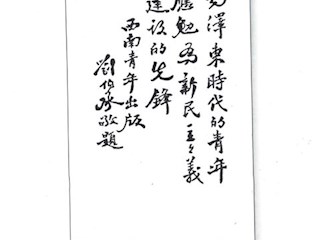 毛澤東時代的青年
應勉為新民主々義
建設的先鋒
西南青年出版
劉伯承敬題